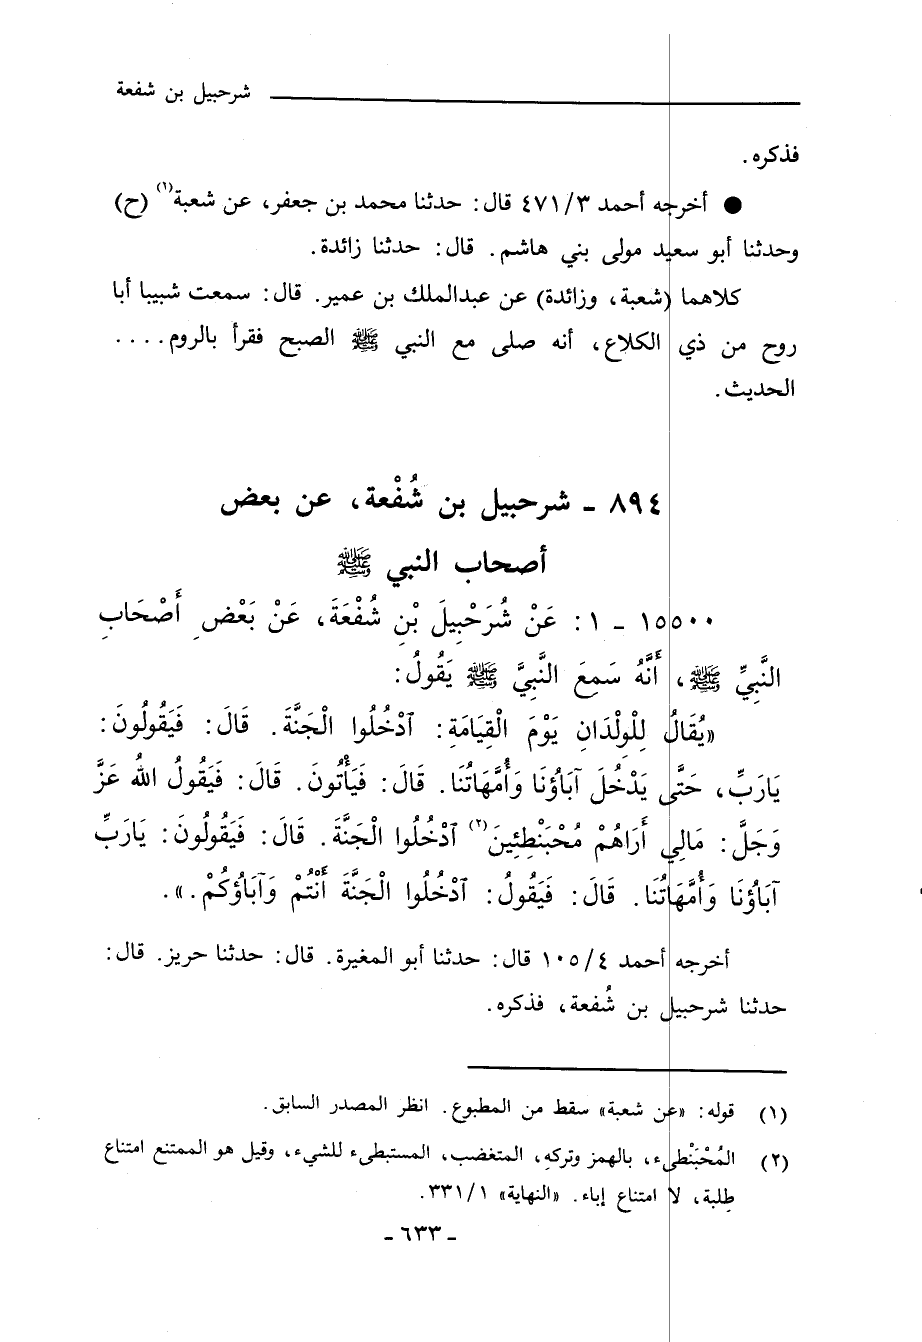 شرحبيل بن شفعة
فذكره .
● أخرجه أحمد ٤٧١/٣ قال : حدثنا محمد بن جعفر، عن شعبة(١) (ح)
وحدثنا أبو سعيد مولى بني هاشم . قال : حدثنا زائدة .
كلاهما (شعبة، وزائدة) عن عبدالملك بن عمير . قال : سمعت شبيبا أبا
روح من ذي الكلاع، أنه صلى مع النبي ﷺ الصبح فقرأ بالروم . . . .
الحديث .
٨٩٤ - شرحبيل بن شُفْعة، عن بعض
أصحاب النبي ﷺ
١٥٥٠٠ - ١ : عَنْ شُرَحْبِيلَ بْنِ شُفْعَةَ، عَنْ بَعْضِ أَصْحَابِ
النَّبِيِّ ﷺ، أَنَّهُ سَمِعَ النَّبِيَّ ﷺ يَقُولُ :
«يُقَالُ لِلْوِلْدَانِ يَوْمَ الْقِيَامَةِ : آدْخُلُوا الْجَنَّةَ . قَالَ : فَيَقُولُونَ :
يَارَبِّ، حَتَّى يَدْخُلَ آبَاؤُنَا وَأُمَّهَاتُنَا . قَالَ : فَيَأْتُونَ . قَالَ : فَيَقُولُ اللهُ عَزَّ
وَجَلَّ : مَالِي أَرَاهُمْ مُحْبَنْطِئِينَ(٢) آدْخُلُوا الْجَنَّةَ . قَالَ : فَيَقُولُونَ : يَارَبِّ
آبَاؤُنَا وَأُمَّهَاتُنَا . قَالَ : فَيَقُولُ : آدْخُلُوا الْجَنَّةَ أَنْتُمْ وَآبَاؤُكُمْ .» .
أخرجه أحمد ١٠٥/٤ قال : حدثنا أبو المغيرة . قال : حدثنا حريز . قال :
حدثنا شرحبيل بن شُفعة، فذكره .
(١) قوله : «عن شعبة» سقط من المطبوع . انظر المصدر السابق .
(٢) المُحْبَنْطىء، بالهمز وتركهِ، المتغضب، المستبطىء للشيء، وقيل هو الممتنع امتناع
طِلبة، لا امتناع إباء . «النهاية» ٣٣١/١ .
- ٦٣٣ -